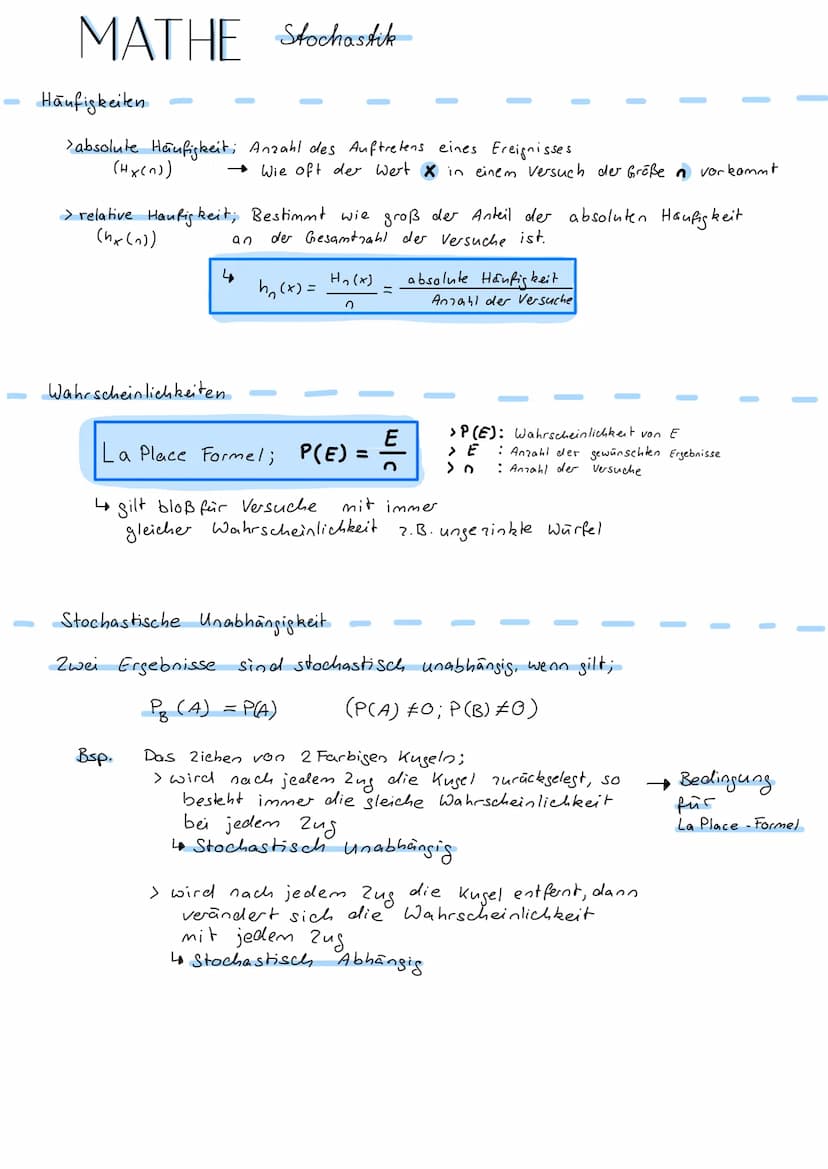 MATHE Stochastik
Häufigkeiten
>absolute Häufigkeit; Anzahl des Auftretens eines Ereignisses
(Hx(n)) → Wie oft der Wert x in einem Versuch der Größe n vorkommt
> relative Häufigkeit; Bestimmt wie groß der Anteil der absoluten Häufigkeit
(hx(n)) an der Gesamtzahl der Versuche ist.
↳ hₙ(x) = Hₙ(x)/n = absolute Häufigkeit/Anzahl der Versuche
Wahrscheinlichkeiten
La Place Formel; P(E) = E/n
>P(E): Wahrscheinlichkeit von E
> E : Anzahl der gewünschten Ergebnisse
> n : Anzahl der Versuche
↳ gilt bloß für Versuche mit immer
gleicher Wahrscheinlichkeit z.B. ungezinkte Würfel
Stochastische Unabhängigkeit
Zwei Ergebnisse sind stochastisch unabhängig, wenn gilt;
P_B (A) = P(A) (P(A) ≠0; P(B) ≠0)
Bsp. Das Ziehen von 2 Farbigen Kugeln;
> wird nach jedem Zug die Kugel zurückgelegt, so
besteht immer die gleiche Wahrscheinlichkeit
bei jedem Zug
↳ Stochastisch Unabhängig
→ Bedingung
für
La Place - Formel
> wird nach jedem Zug die Kugel entfernt, dann
verändert sich die Wahrscheinlichkeit
mit jedem Zug
↳ Stochastisch Abhängig